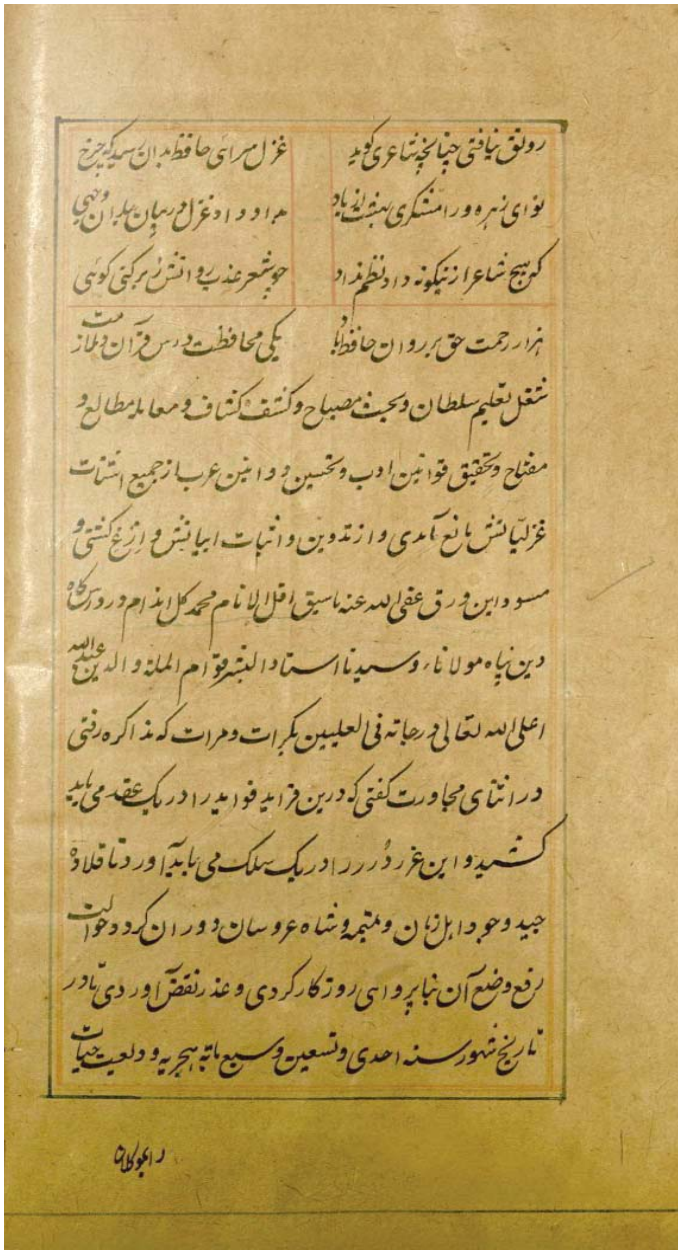 رونق نیافتی چنانچه شاعری کوید غزل سرائی حافظ بدان رسید که چرخ
نوای زهره و رامشکری بهشت از یاد بداد داد غزل در بیان بدان وجهی
که هیچ شاعر ازینکونه داد نظم نداد چو شعر عذب روانش ز بر کنی کوئی
هزار رحمت حق بر روان حافظ باد یکی محافظت درس قرآن و ملازمت
شغل تعلیم سلطان و بحث مصباح و کشف کشاف و معامله مطالع و
مفتاح و تحقیق قوانین ادب و تحسین دواوین عرب از جمیع اشتات
غزلیاتش مانع آمدی و از تدوین و اثبات ابیاتش وازغ کشتی و
مسود این ورق عفی الله عنه ماسبق اقل الانام محمد کل اندام در درس کاه
دین پناه مولاناء وسیدنا استاد البشر قوام الملة و الدین عبدالله
اعلی الله تعالی درجاته فی العلیین بکرات و مرات که مذاکره رفتی
در اثنای محاورت کفتی که درین فراید فواید را در یک عقد می باید
کشید و این غرر دُرر را در یک سلک می باید آورد تا قلاده
جید وجود اهل زمان و متیمه وشاه عروسان دوران کردد حوالت
رفع وضع آن بناپروایی روزکار کردی و عذر نقض آوردی تا در
تاریخ شهور سنه احدی و تسعین و سبع مایه هجریه ودیعت حیات